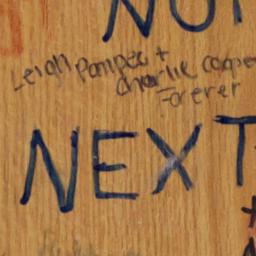 NOT
Leigh Pompeo +
Charlie Cooper
Forever
NEXT